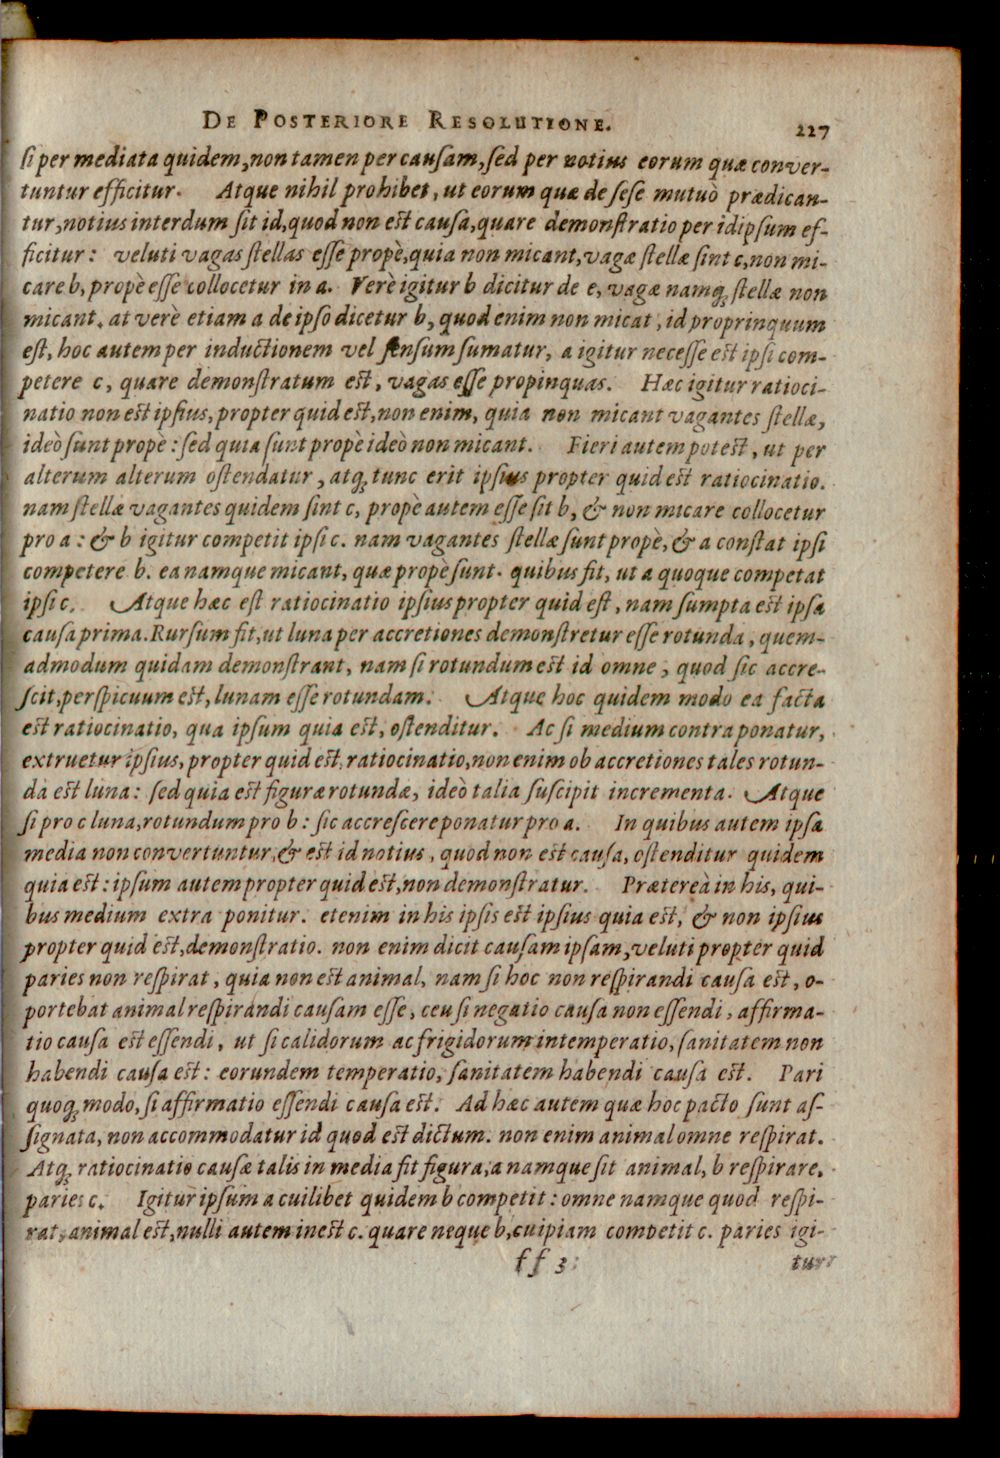 DE POSTERIORE RESOLUTIONE. 227
si per mediata quidem, non tamen per causam, sed per notius eorum quæ conver-
tuntur efficitur. Atque nihil prohibet, ut eorum quæ de sese mutuò prædican-
tur, notius interdum sit id, quod non est causa, quare demonstratio per idipsum ef-
ficitur: veluti vagas stellas esse propè, quia non micant, vagæ stellæ sint c, non mi-
care b, propè esse collocetur in a. Verè igitur b dicitur de e, vagæ namq; stellæ non
micant. at verè etiam a de ipso dicetur b, quod enim non micat, id proprinquum
est, hoc autem per inductionem vel sensum sumatur, a igitur necesse est ipsi com-
petere c, quare demonstratum est, vagas esse propinquas. Hæc igitur ratioci-
natio non est ipsius, propter quid est, non enim, quia non micant vagantes stellæ,
ideò sunt propè: sed quia sunt propè ideò non micant. Fieri autem potest, ut per
alterum alterum ostendatur, atq; tunc erit ipsius propter quid est ratiocinatio.
nam stellæ vagantes quidem sint c, propè autem esse sit b, & non micare collocetur
pro a: & b igitur competit ipsi c. nam vagantes stellæ sunt propè, & a constat ipsi
competere b. ea namque micant, quæ propè sunt. quibus fit, ut a quoque competat
ipsi c. Atque hæc est ratiocinatio ipsius propter quid est, nam sumpta est ipsa
causa prima. Rursum fit, ut luna per accretiones demonstretur esse rotunda, quem-
admodum quidam demonstrant, nam si rotundum est id omne, quod sic accre-
scit, perspicuum est, lunam esse rotundam. Atque hoc quidem modo ea facta
est ratiocinatio, qua ipsum quia est, ostenditur. Ac si medium contra ponatur,
extruetur ipsius, propter quid est, ratiocinatio, non enim ob accretiones tales rotun-
da est luna: sed quia est figuræ rotundæ, ideò talia suscipit incrementa. Atque
si pro c luna, rotundum pro b: sic accrescere ponatur pro a. In quibus autem ipsa
media non convertuntur, & est id notius, quod non est causa, ostenditur quidem
quia est: ipsum autem propter quid est, non demonstratur. Prætereà in his, qui-
bus medium extra ponitur. etenim in his ipsis est ipsius quia est, & non ipsius
propter quid est, demonstratio. non enim dicit causam ipsam, veluti propter quid
paries non respirat, quia non est animal, nam si hoc non respirandi causa est, o-
portebat animal respirandi causam esse, ceu si negatio causa non essendi, affirma-
tio causa est essendi, ut si calidorum ac frigidorum intemperatio, sanitatem non
habendi causa est: eorundem temperatio, sanitatem habendi causa est. Pari
quoq; modo, si affirmatio essendi causa est. Ad hæc autem quæ hoc pacto sunt as-
signata, non accommodatur id quod est dictum. non enim animal omne respirat.
Atq; ratiocinatio causæ talis in media fit figura, a namque sit animal, b respirare,
paries c. Igitur ipsum a cuilibet quidem b competit: omne namque quod respi-
rat, animal est, nulli autem inest c. quare neque b, cuipiam competit c. paries igi-
ff 3 tur